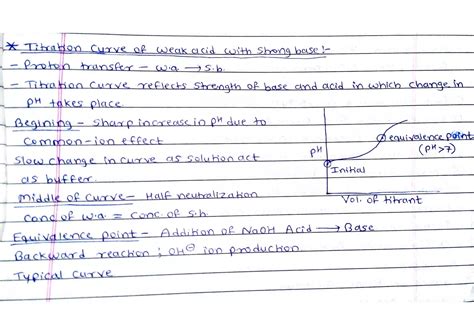 * Titration Curve of weak acid with strong base :-
- Proton transfer - w.a → s.b.
- Titration curve reflects strength of base and acid in which change in
pH takes place
Begining - sharp increase in pH due to
common-ion effect
Slow change in curve as solution act
as buffer
Middle of curve - Half neutralization
Conc of w.a = Conc. of s.b.
Equivalence point - Addition of NaOH Acid → Base
Backward reaction ; OH⊖ ion production
Typical curve
pH
equivalence point
(pH>7)
Initial
Vol. of titrant